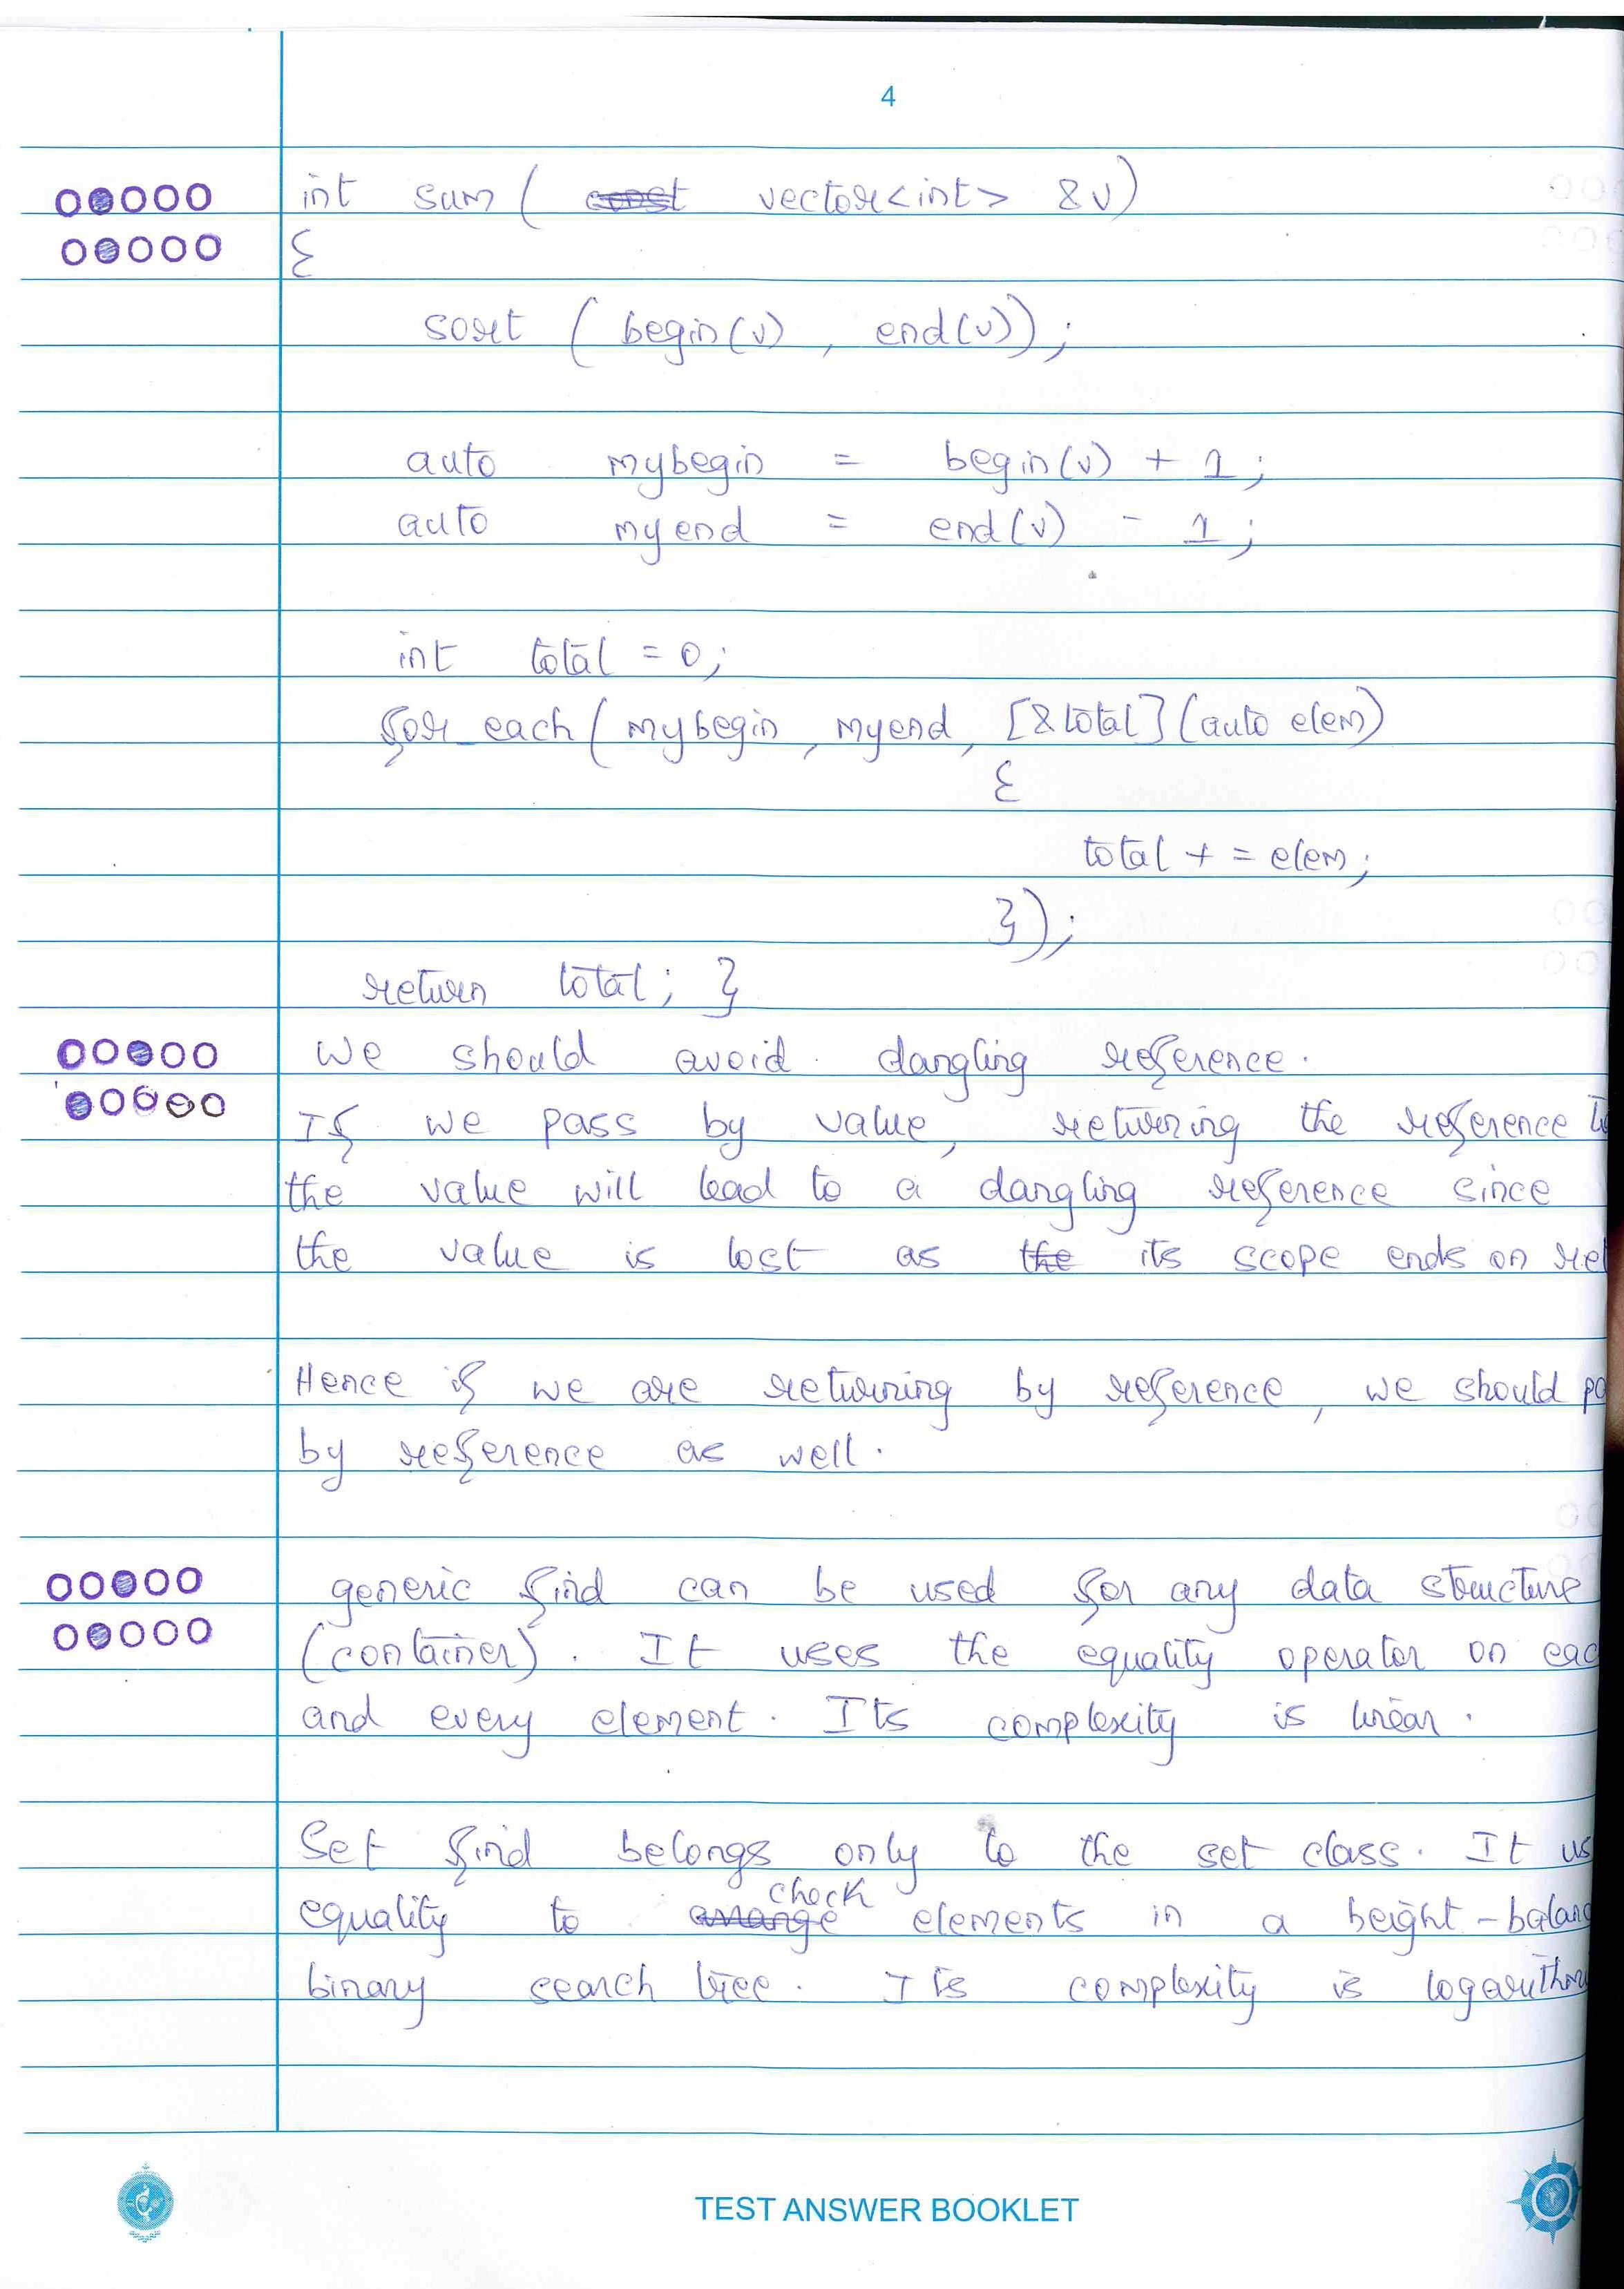 4
int sum ( const vector<int> &v)
{
sort ( begin(v) , end(v));
auto mybegin = begin(v) + 1;
auto myend = end(v) - 1;
int total = 0;
for_each( mybegin , myend, [&total] (auto elem)
{
total + = elem;
});
return total; }
we should avoid. dangling reference.
If we pass by value, returning the reference
the value will lead to a dangling reference since
the value is lost as the its scope ends on ret
Hence if we are returning by reference, we should pa
by reference as well.
generic find can be used for any data structure
(container). It uses the equality operator on eac
and every element. Its complexity is linear.
Set find belongs only to the set class. It us
check
equality to arrange elements in a height-balanc
binary search tree. Its complexity is logarithm
TEST ANSWER BOOKLET